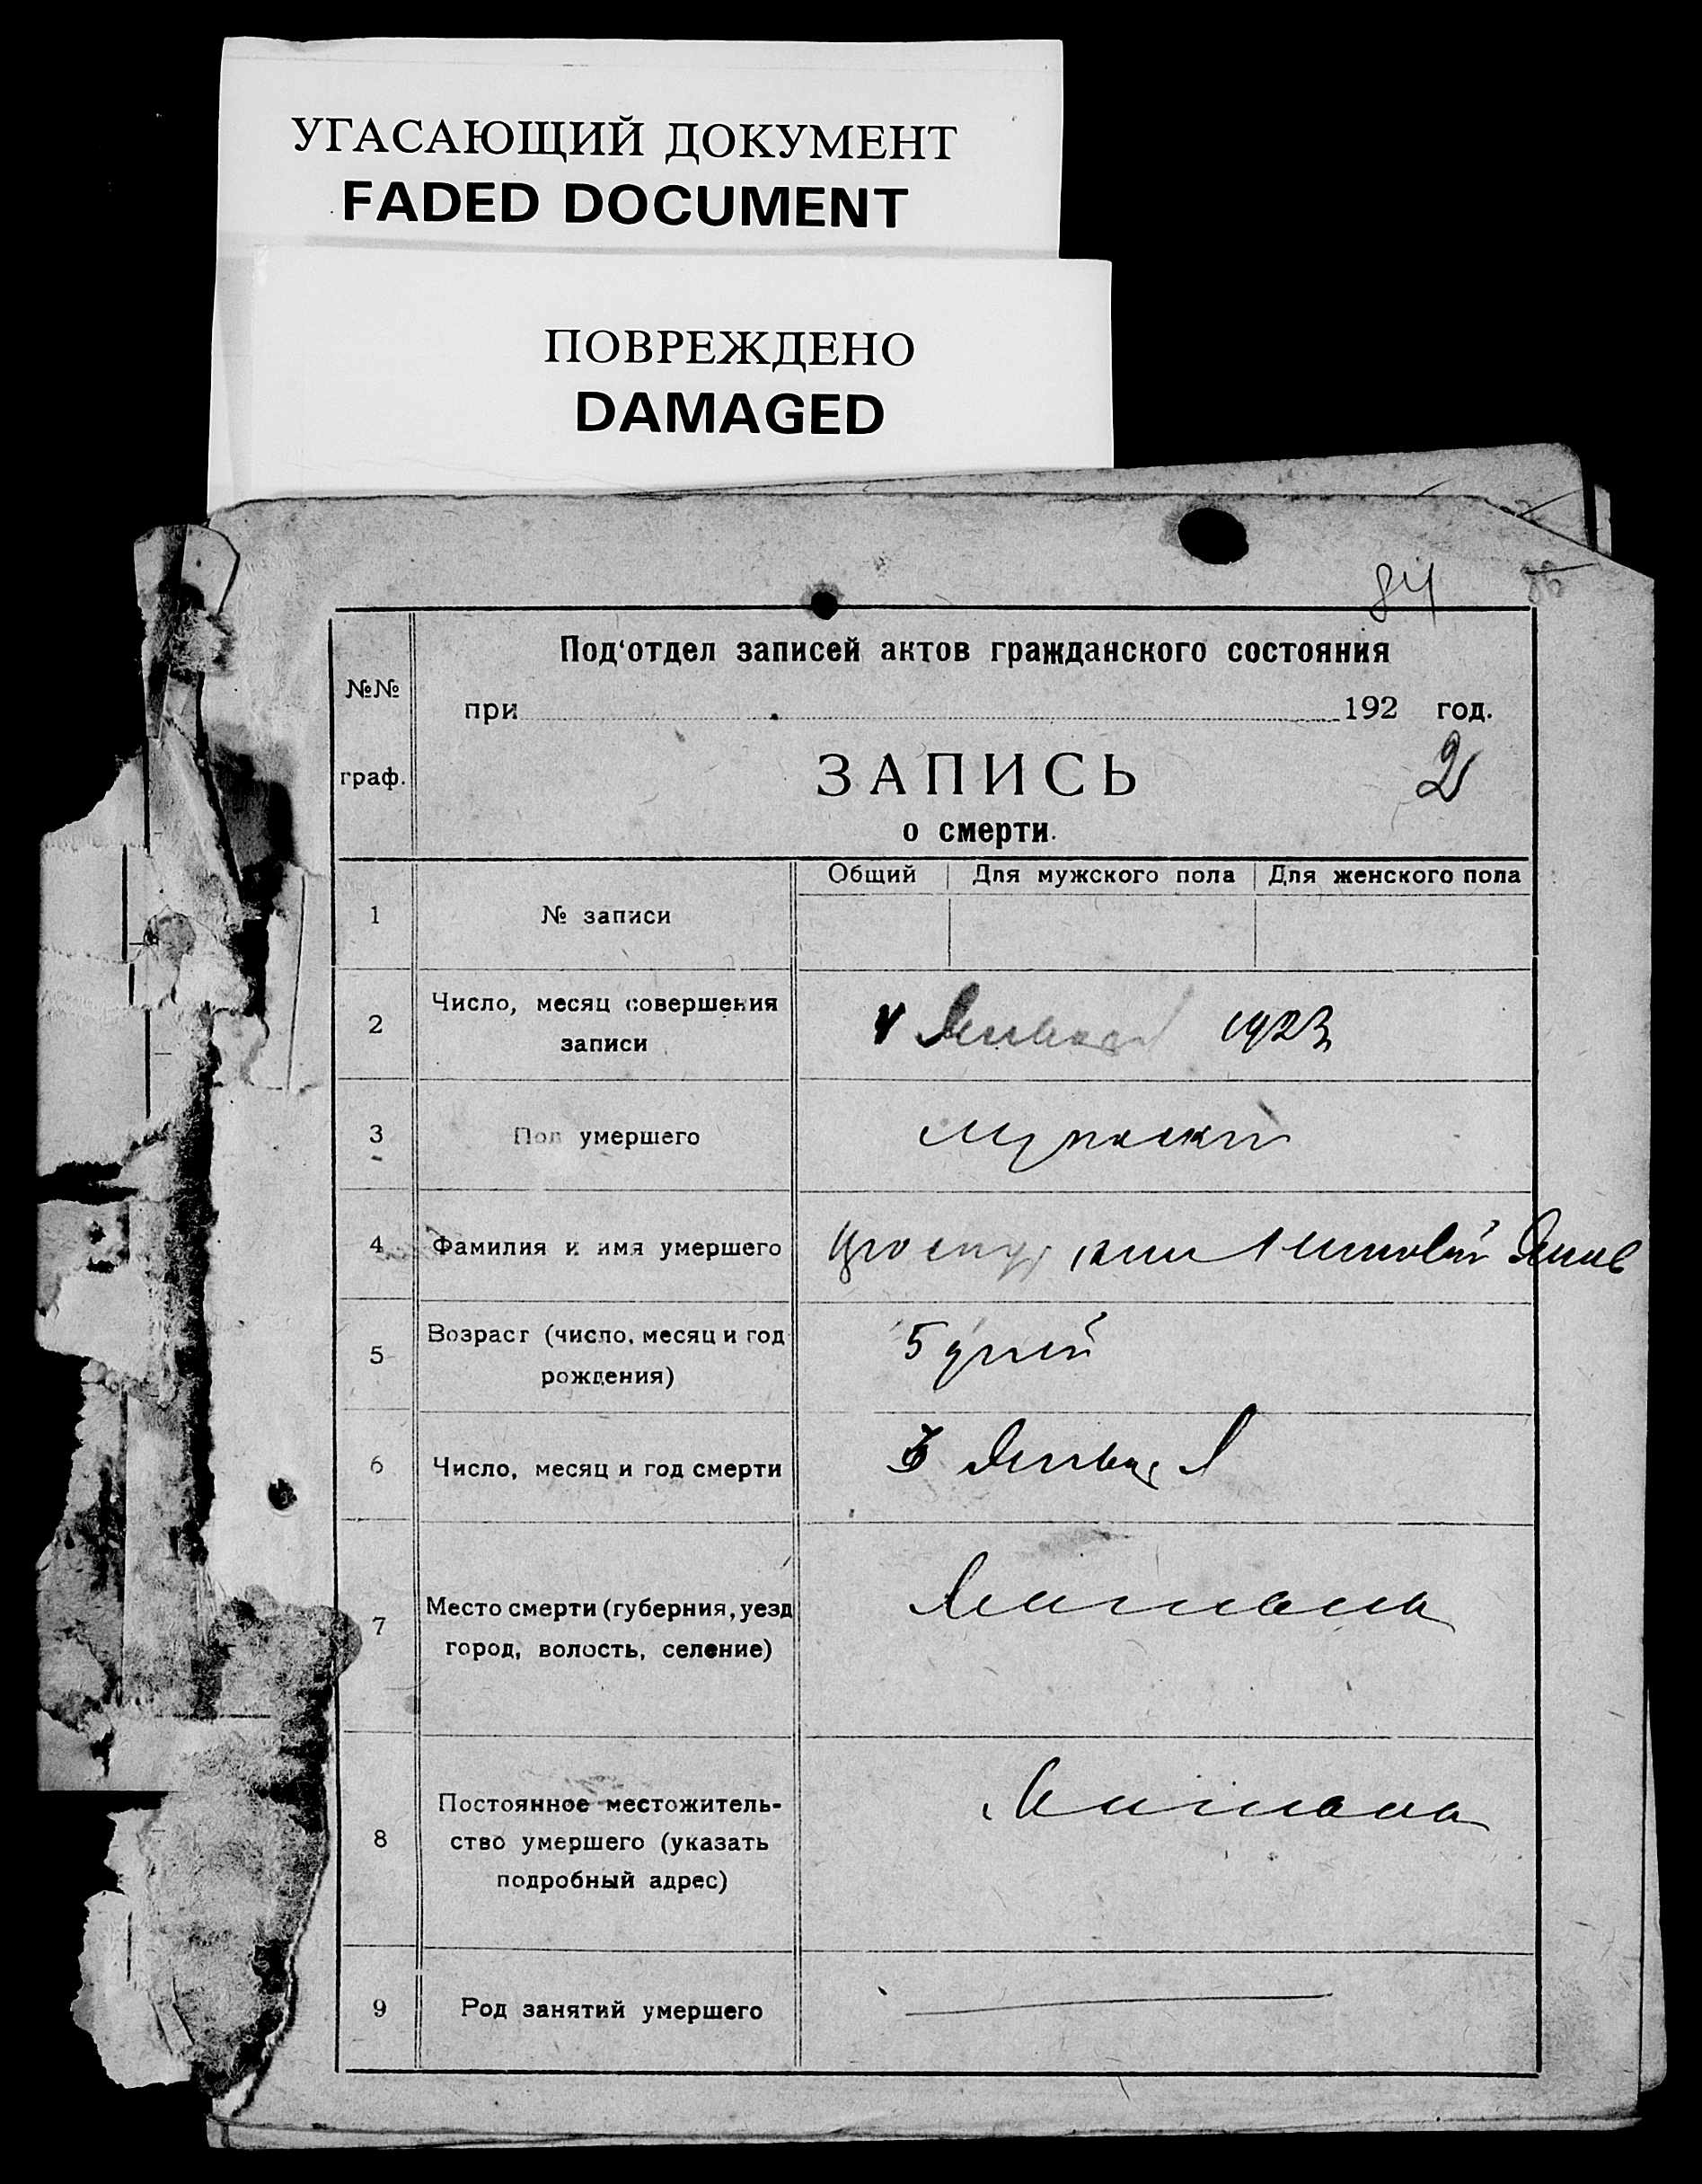 УГАСАЮЩИЙ ДОКУМЕНТ
FADED DOCUMENT
ПОВРЕЖДЕНО
DAMAGED
84
86
№№
граф.
Под'отдел записей актов гражданского состояния
при 192 год.
ЗАПИСЬ
2
о смерти.
Общий Для мужского пола Для женского пола
1 № записи
2 Число, месяц совершения
записи
4 Января 1923
3 Пол умершего
мужской
4 Фамилия и имя умершего
5 Возраст (число, месяц и год
рождения)
5 дней
6 Число, месяц и год смерти
3 Января
7 Место смерти (губерния, уезд
город, волость, селение)
8 Постоянное местожитель-
ство умершего (указать
подробный адрес)
9 Род занятий умершего